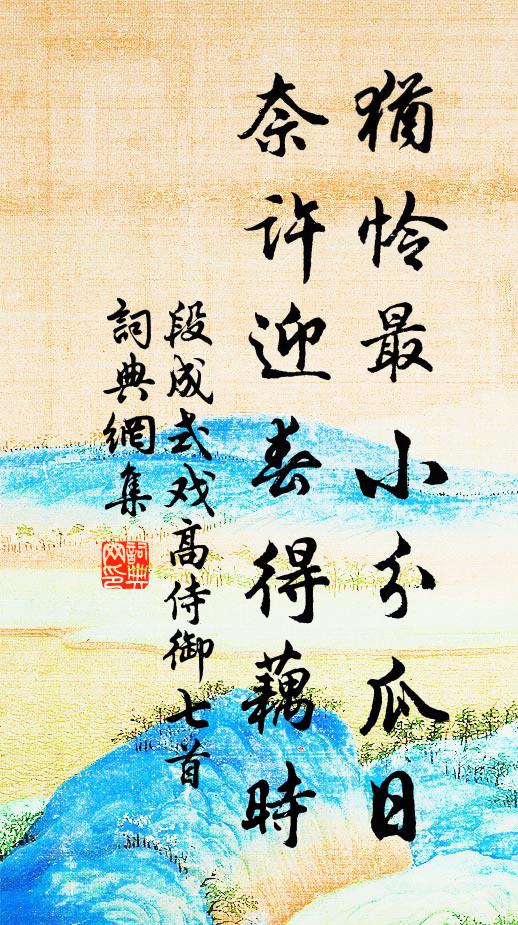 猶怜最小分瓜日
奈许迎春得藕時
段成式戏高侍御七首
詞典網集
詞典网印